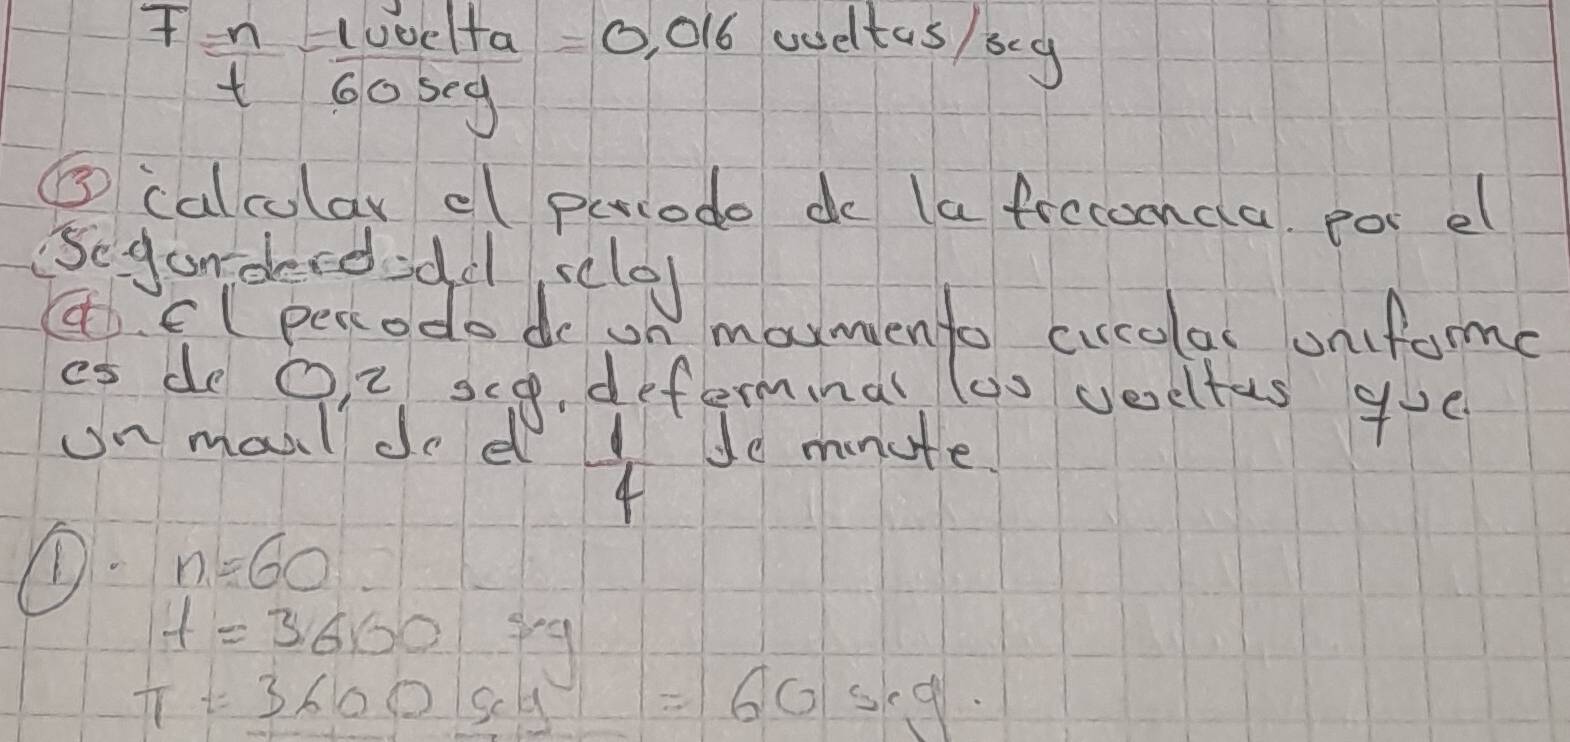 F = n/t = 1 vuelta/60 seg = 0,016 vueltas/seg
③ calcular el periodo de la frecuencia. por el
segundero del reloj
④. El periodo de un movimiento circular uniforme
es de 0,2 seg. determinar las vueltas que
un movil de el 1/4 de minute.
①. n=60
t = 3600 seg
T = 3600 seg = 60 seg.